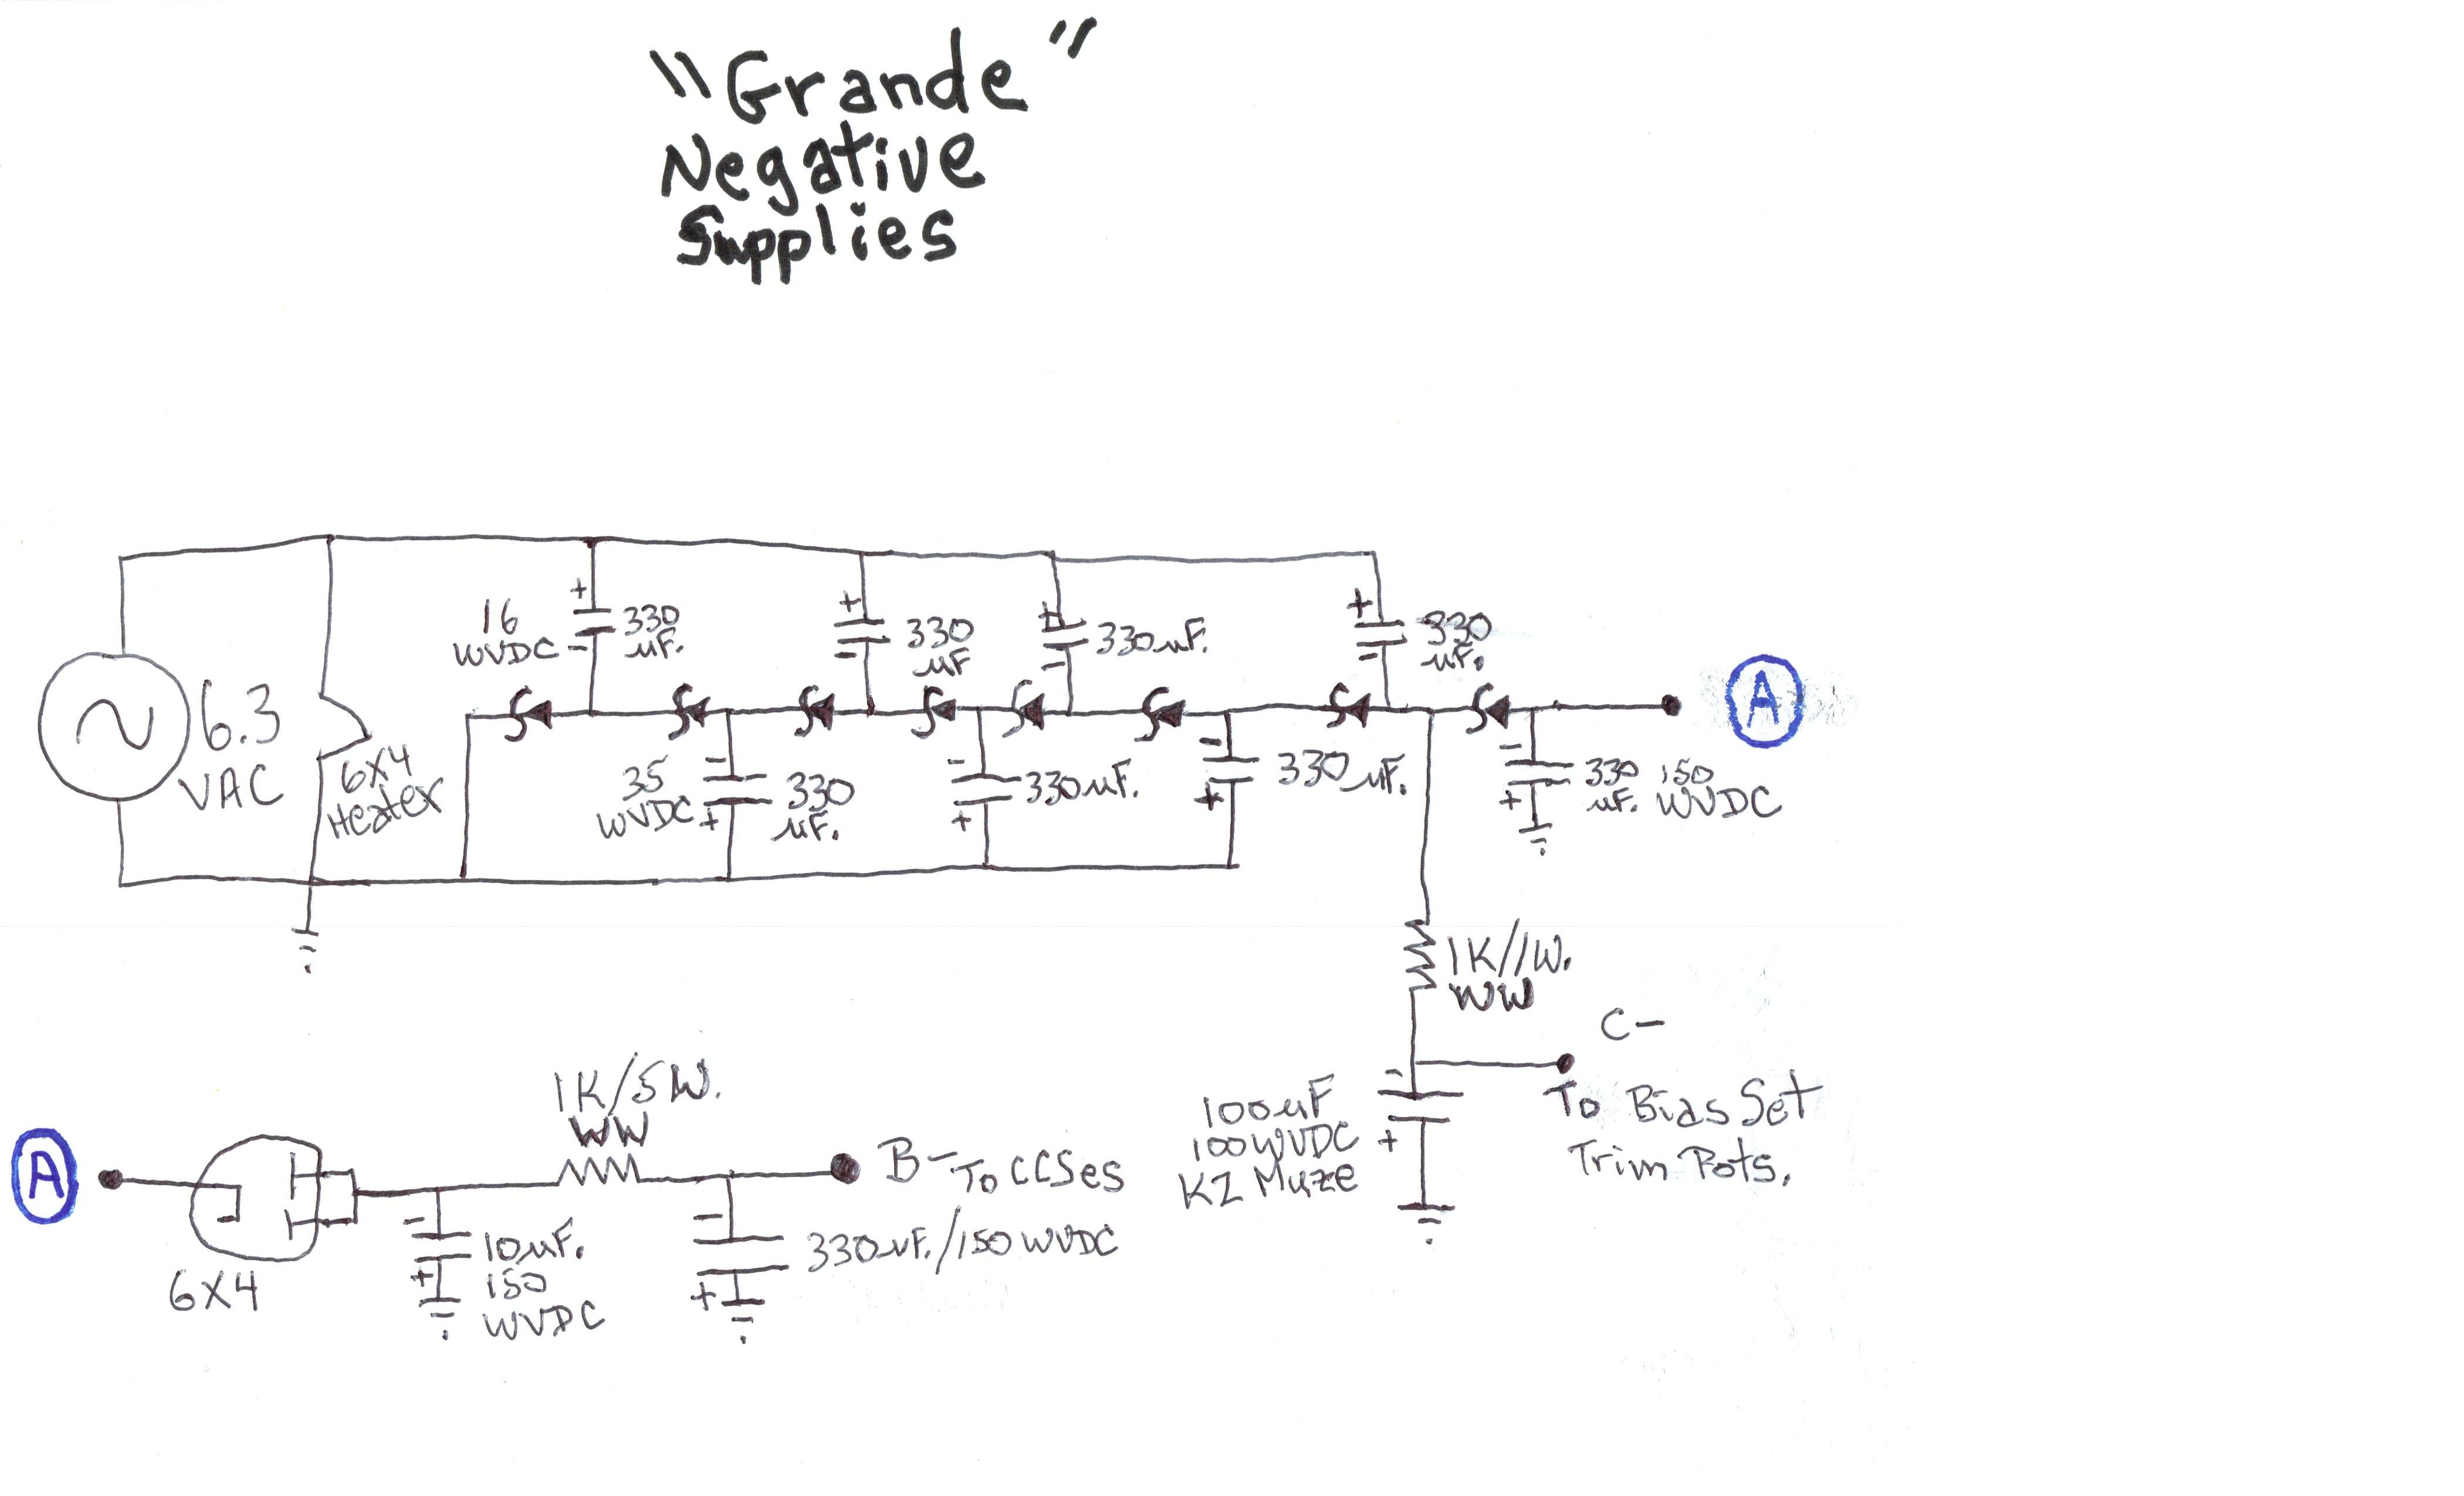 "Grande"
Negative
Supplies
6.3
VAC
6X4
Heater
16
WVDC
+
-
330
uF.
+
-
330
uF
+
-
330uF.
+
-
330
uF.
A
35
WVDC
-
+
330
uF.
-
+
330uF.
-
+
330uF.
-
+
330
uF.
150
WVDC
1K/1W.
WW
C-
To Bias Set
Trim Pots.
-
+
100uF
100WVDC
KZ Muze
A
6X4
1K/5W.
WW
B- To CCSes
-
+
10uF.
150
WVDC
-
+
330uF./150WVDC